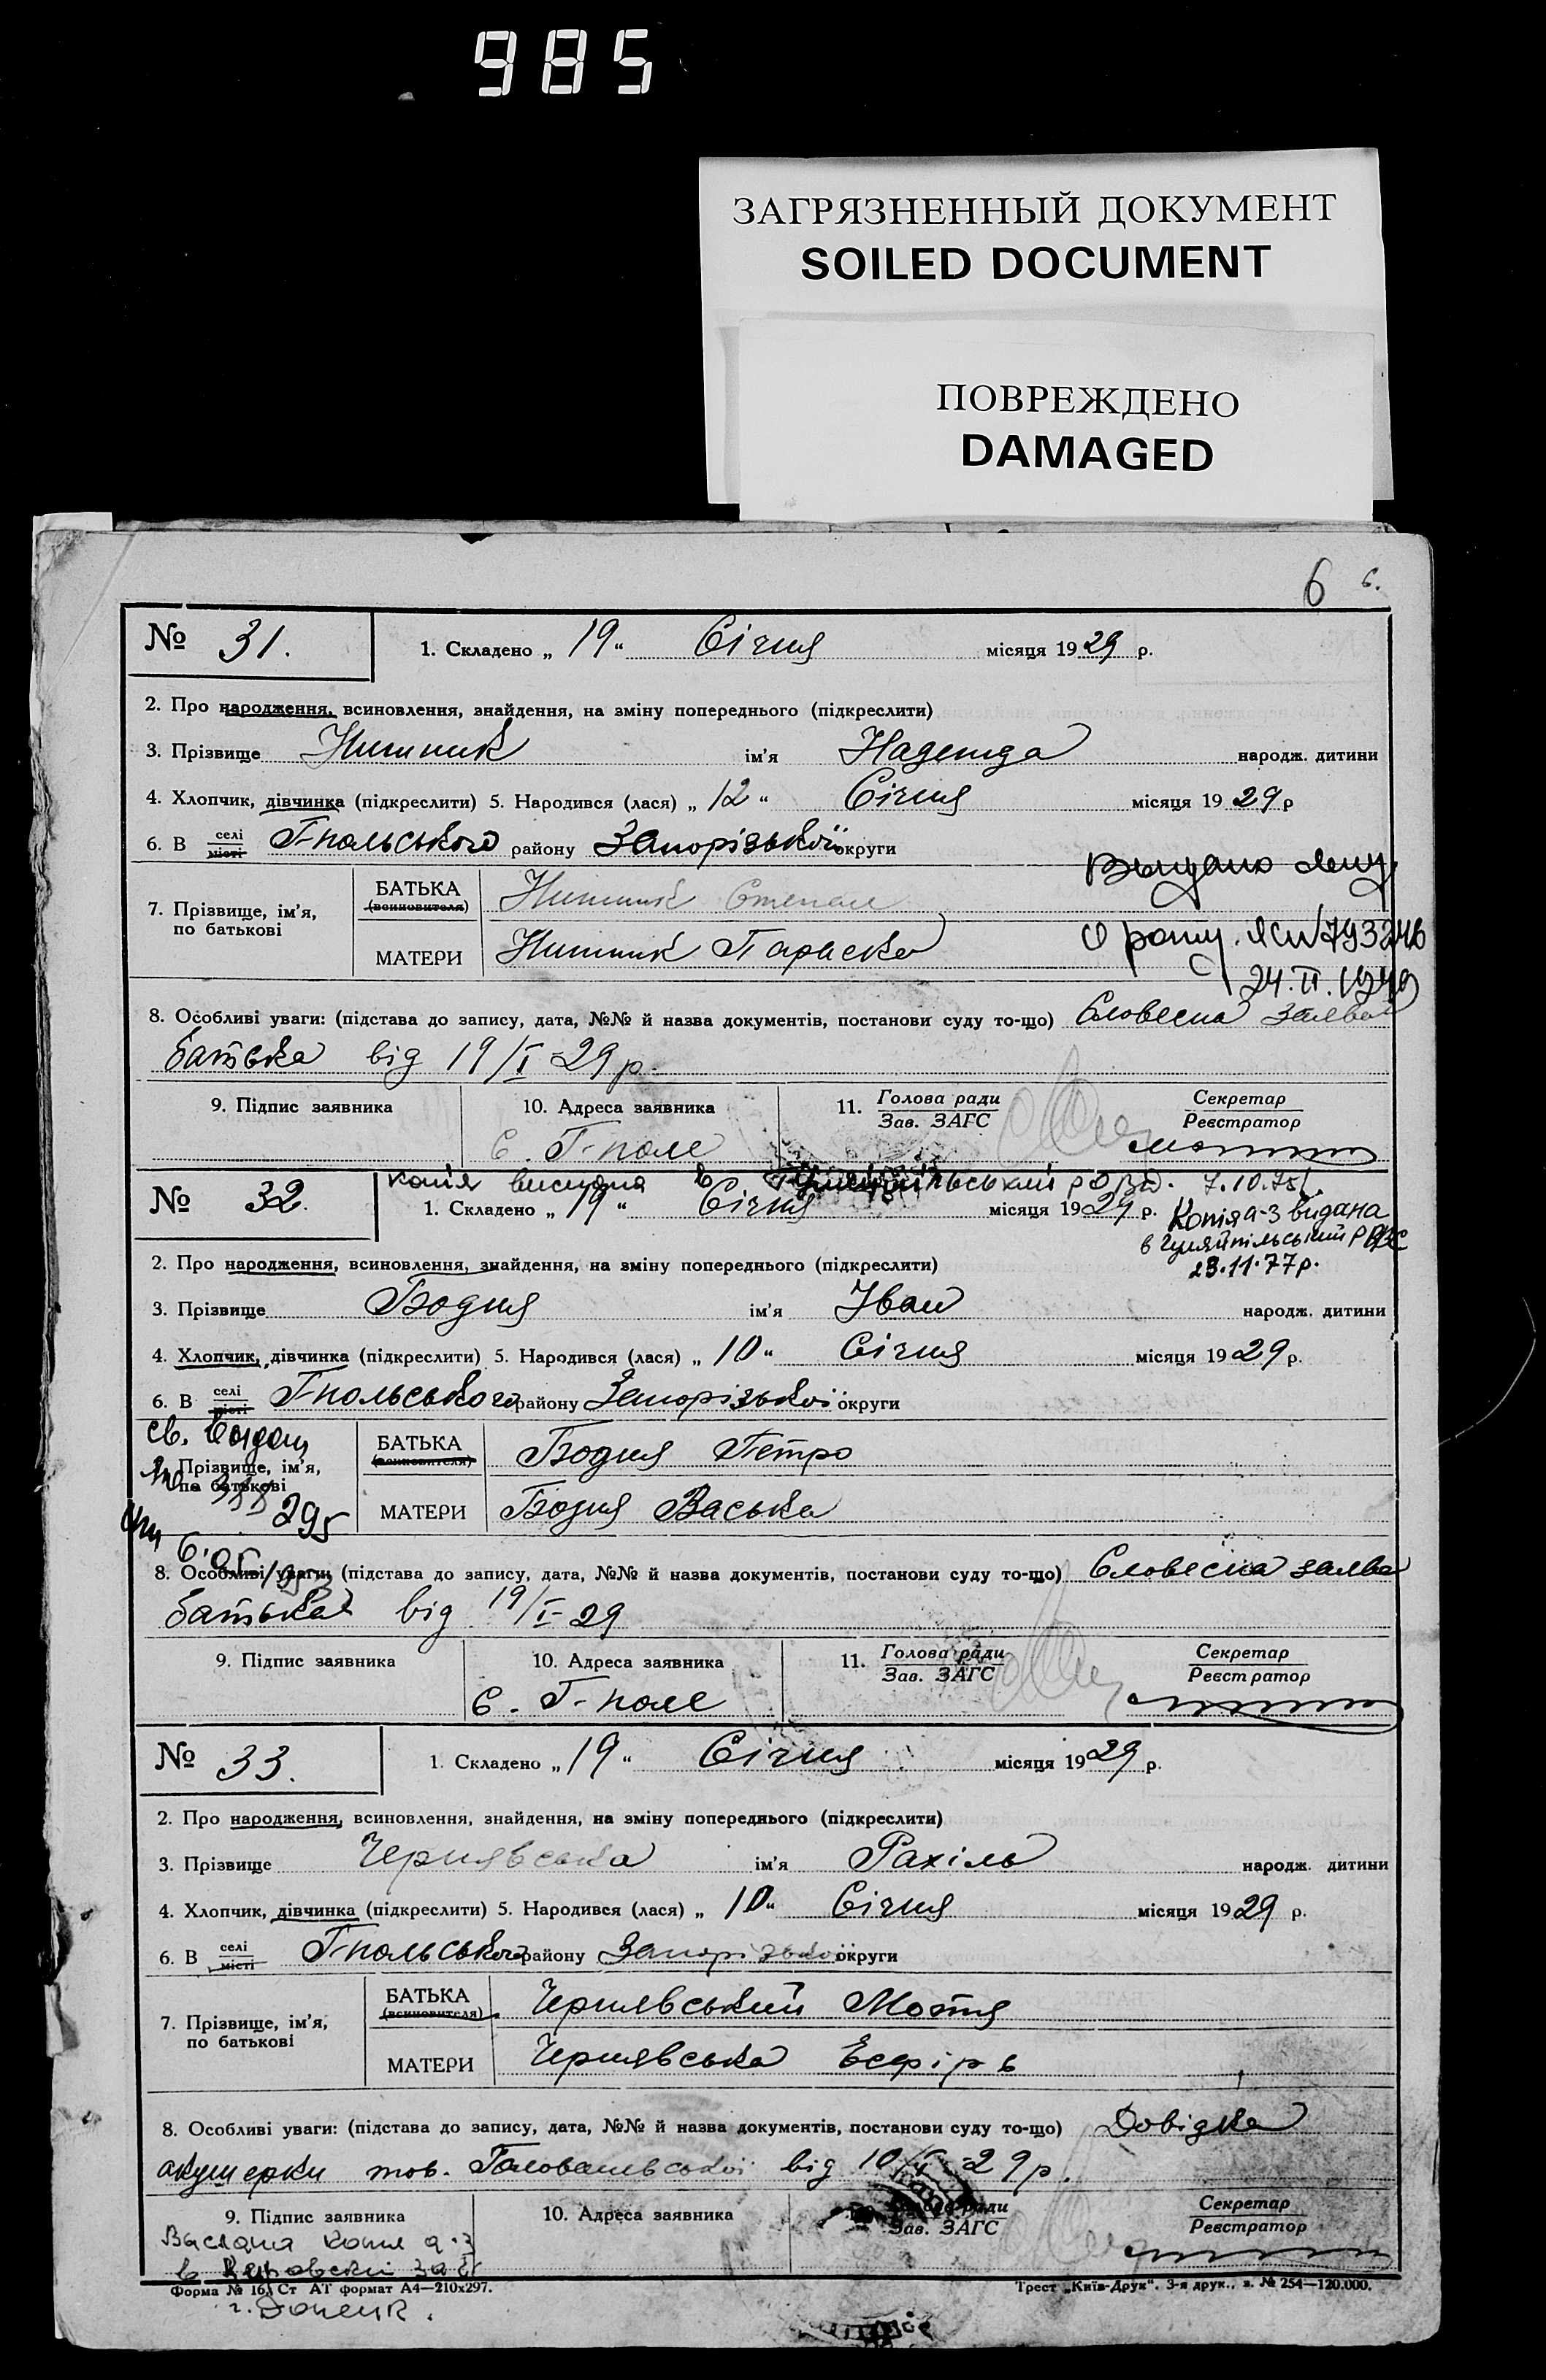 985
ЗАГРЯЗНЕННЫЙ ДОКУМЕНТ
SOILED DOCUMENT
ПОВРЕЖДЕНО
DAMAGED
6 6.
№ 31. 1. Складено „ 19 “ Січня місяця 1929 р.
2. Про народження, всиновлення, знайдення, на зміну попереднього (підкреслити)
3. Прізвище Нишник ім'я Надежда народж. дитини
4. Хлопчик, дівчинка (підкреслити) 5. Народився (лася) „ 12 “ Січня місяця 19 29 р
6. В селі місті Г-польського району Запорізької округи
Выдано
7. Прізвище, ім'я, по батькові
БАТЬКА (всиновителя) Нишник Степан
МАТЕРИ Нишник Параска
О рожд.
24. II.
8. Особливі уваги: (підстава до запису, дата, №№ й назва документів, постанови суду то-що) Словесна заява
батька від 19/I-29 р.
9. Підпис заявника 10. Адреса заявника 11. Голова ради Зав. ЗАГС Секретар Реєстратор
с. Г-поле
копія в 7.10.75
№ 32. 1. Складено „ 19 “ Січня місяця 1929 р.
Копія а-з видана
в Гуляйпільський РВВС
23.11.77р.
2. Про народження, всиновлення, знайдення, на зміну попереднього (підкреслити)
3. Прізвище Бодня ім'я Іван народж. дитини
4. Хлопчик, дівчинка (підкреслити) 5. Народився (лася) „ 10 “ Січня місяця 1929 р.
6. В селі місті Г-польського району Запорізької округи
св. выдан
7. Прізвище, ім'я, по батькові
295
БАТЬКА (всиновителя) Бодня Петро
МАТЕРИ Бодня Васька
8. Особливі уваги: (підстава до запису, дата, №№ й назва документів, постанови суду то-що) Словесна заява
батька від 19/I-29
9. Підпис заявника 10. Адреса заявника 11. Голова ради Зав. ЗАГС Секретар Реєстратор
с. Г-поле
№ 33. 1. Складено „ 19 “ Січня місяця 1929 р.
2. Про народження, всиновлення, знайдення, на зміну попереднього (підкреслити)
3. Прізвище Чернявська ім'я Рахіль народж. дитини
4. Хлопчик, дівчинка (підкреслити) 5. Народився (лася) „ 10 “ Січня місяця 1929 р.
6. В селі місті Г-польського району Запорізької округи
7. Прізвище, ім'я, по батькові
БАТЬКА (всиновителя) Чернявський Мотя
МАТЕРИ Чернявська Есфірь
8. Особливі уваги: (підстава до запису, дата, №№ й назва документів, постанови суду то-що) Довідка
акушерки тов. від 10/I-29р.
9. Підпис заявника 10. Адреса заявника Голова ради Зав. ЗАГС Секретар Реєстратор
Выслана копия а-з
в Кировский загс
Форма № 16, Ст АТ формат А4—210x297. Трест „Київ-Друк“. 3-я друк., з. № 254—120.000.
г. Донецк.